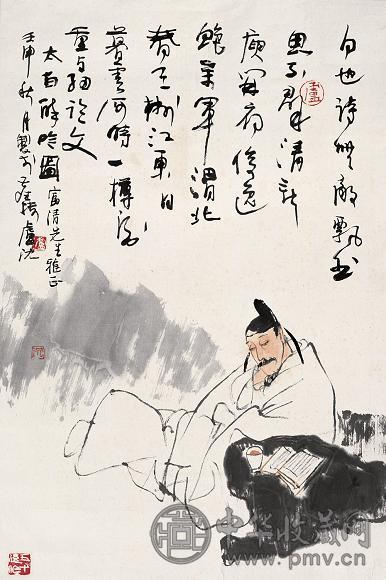 白也詩無敵飄然
思不群清新
庾開府俊逸
鮑參軍渭北
春天樹江東日
暮雲何時一樽酒
重与細論文
太白醉吟圖
富清先生雅正
壬申秋月製於盧沈
中华收藏网
www.pmv.cn